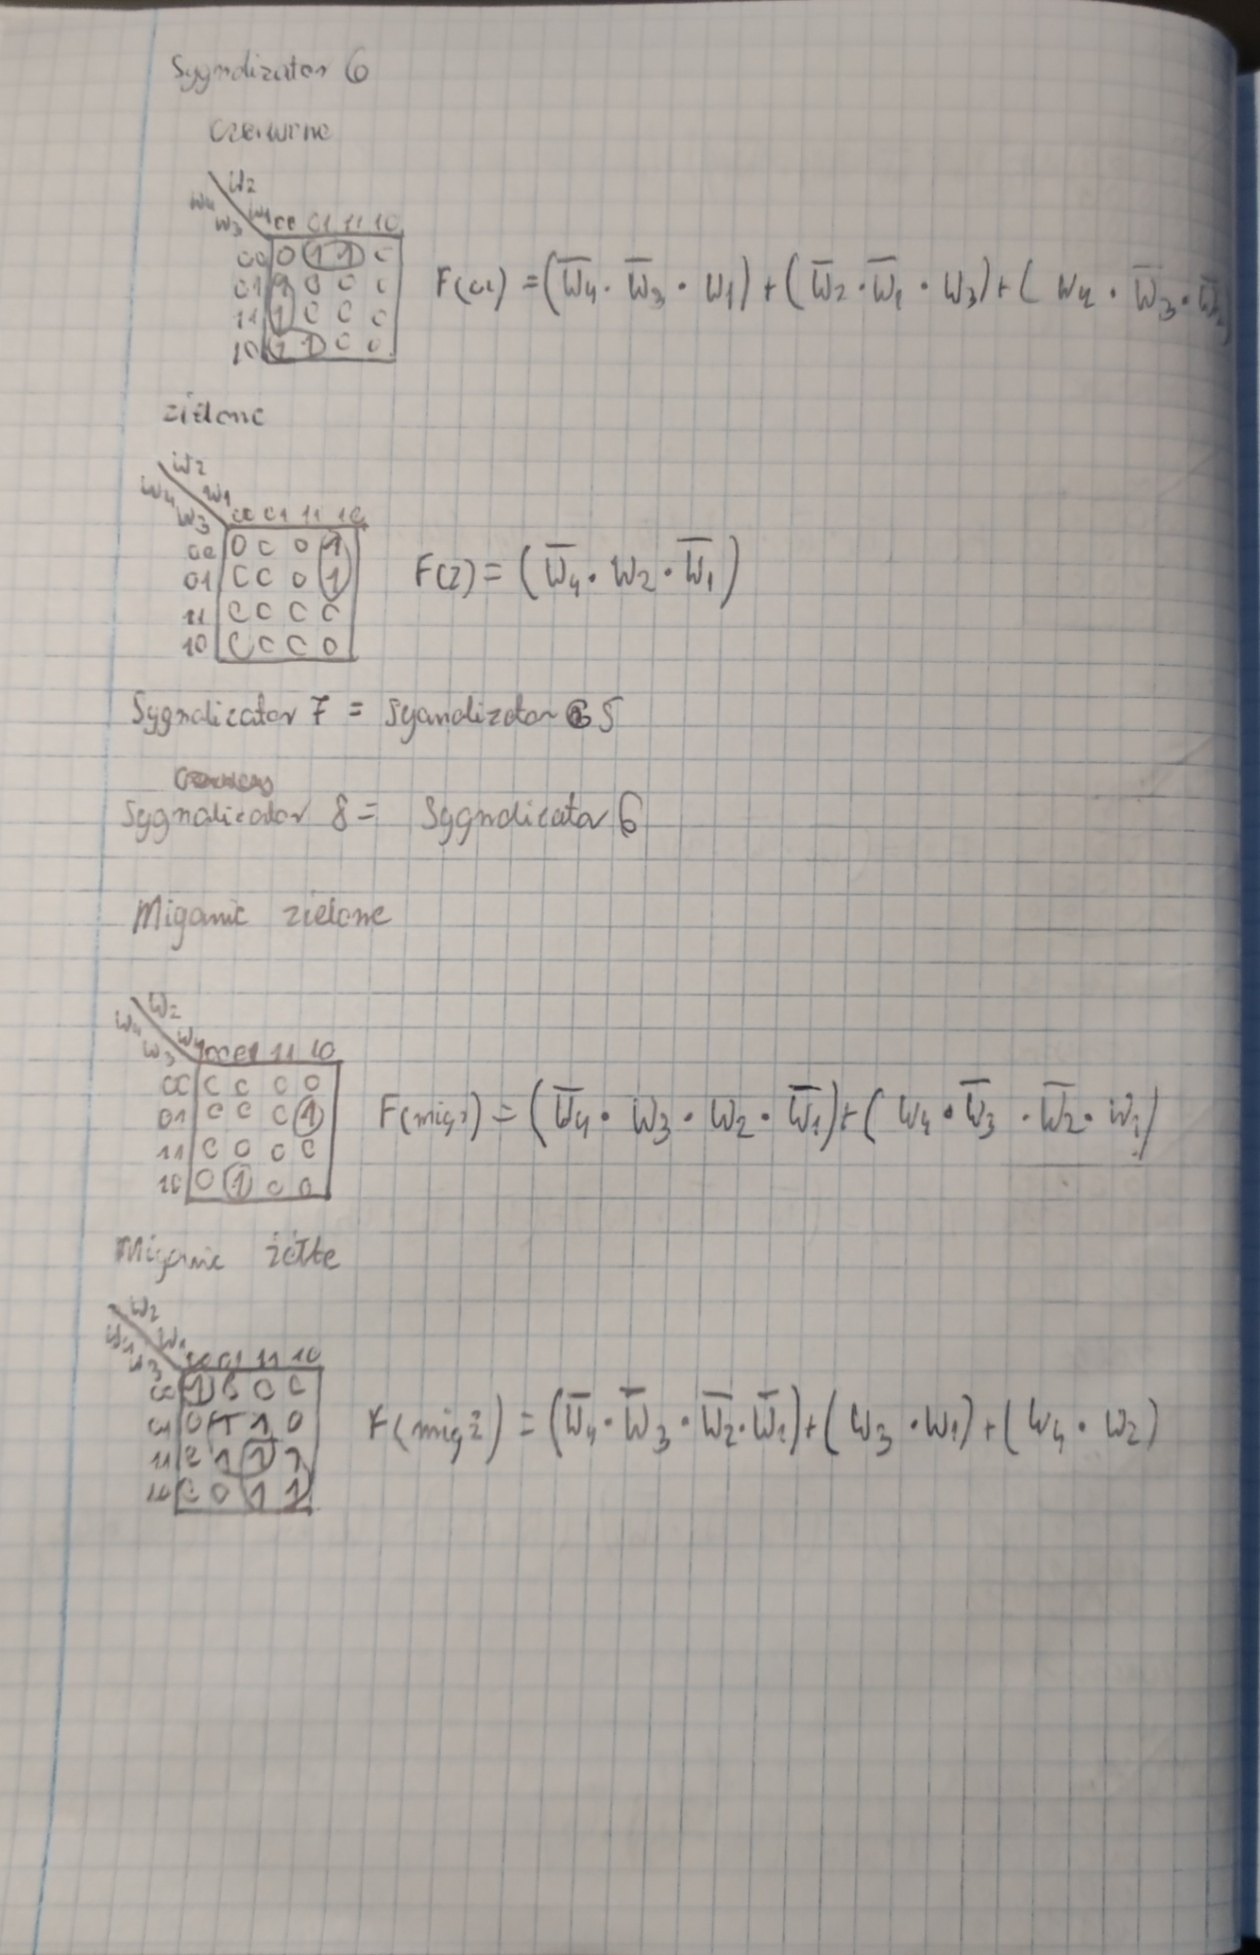 Sygnalizator 6
Czerwone
W2
W4
W3 W1 00 01 11 10
00 0 1 1 0
01 1 0 0 0
11 1 0 0 0
10 1 1 0 0
F(cz) = (W̅4 · W̅3 · W1) + (W̅2 · W̅1 · W3) + ( W4 · W̅3 · W̅2)
zielone
W2
W4 W1
W3 00 01 11 10
00 0 0 0 1
01 0 0 0 1
11 0 0 0 0
10 0 0 0 0
F(z) = (W̅4 · W2 · W̅1)
Sygnalizator 7 = Sygnalizator 5
Sygnalizator 8 = Sygnalizator 6
Miganie zielone
W2
W4 W1
W3 00 01 11 10
00 0 0 0 0
01 0 0 0 1
11 0 0 0 0
10 0 1 0 0
F(migz) = (W̅4 · W3 · W2 · W̅1) + ( W4 · W̅3 · W̅2 · W1)
Miganie żółte
W2
W4 W1
W3 00 01 11 10
00 1 0 0 0
01 0 1 1 0
11 0 1 1 1
10 0 0 1 1
F(migż) = (W̅4 · W̅3 · W̅2 · W̅1) + (W3 · W1) + (W4 · W2)